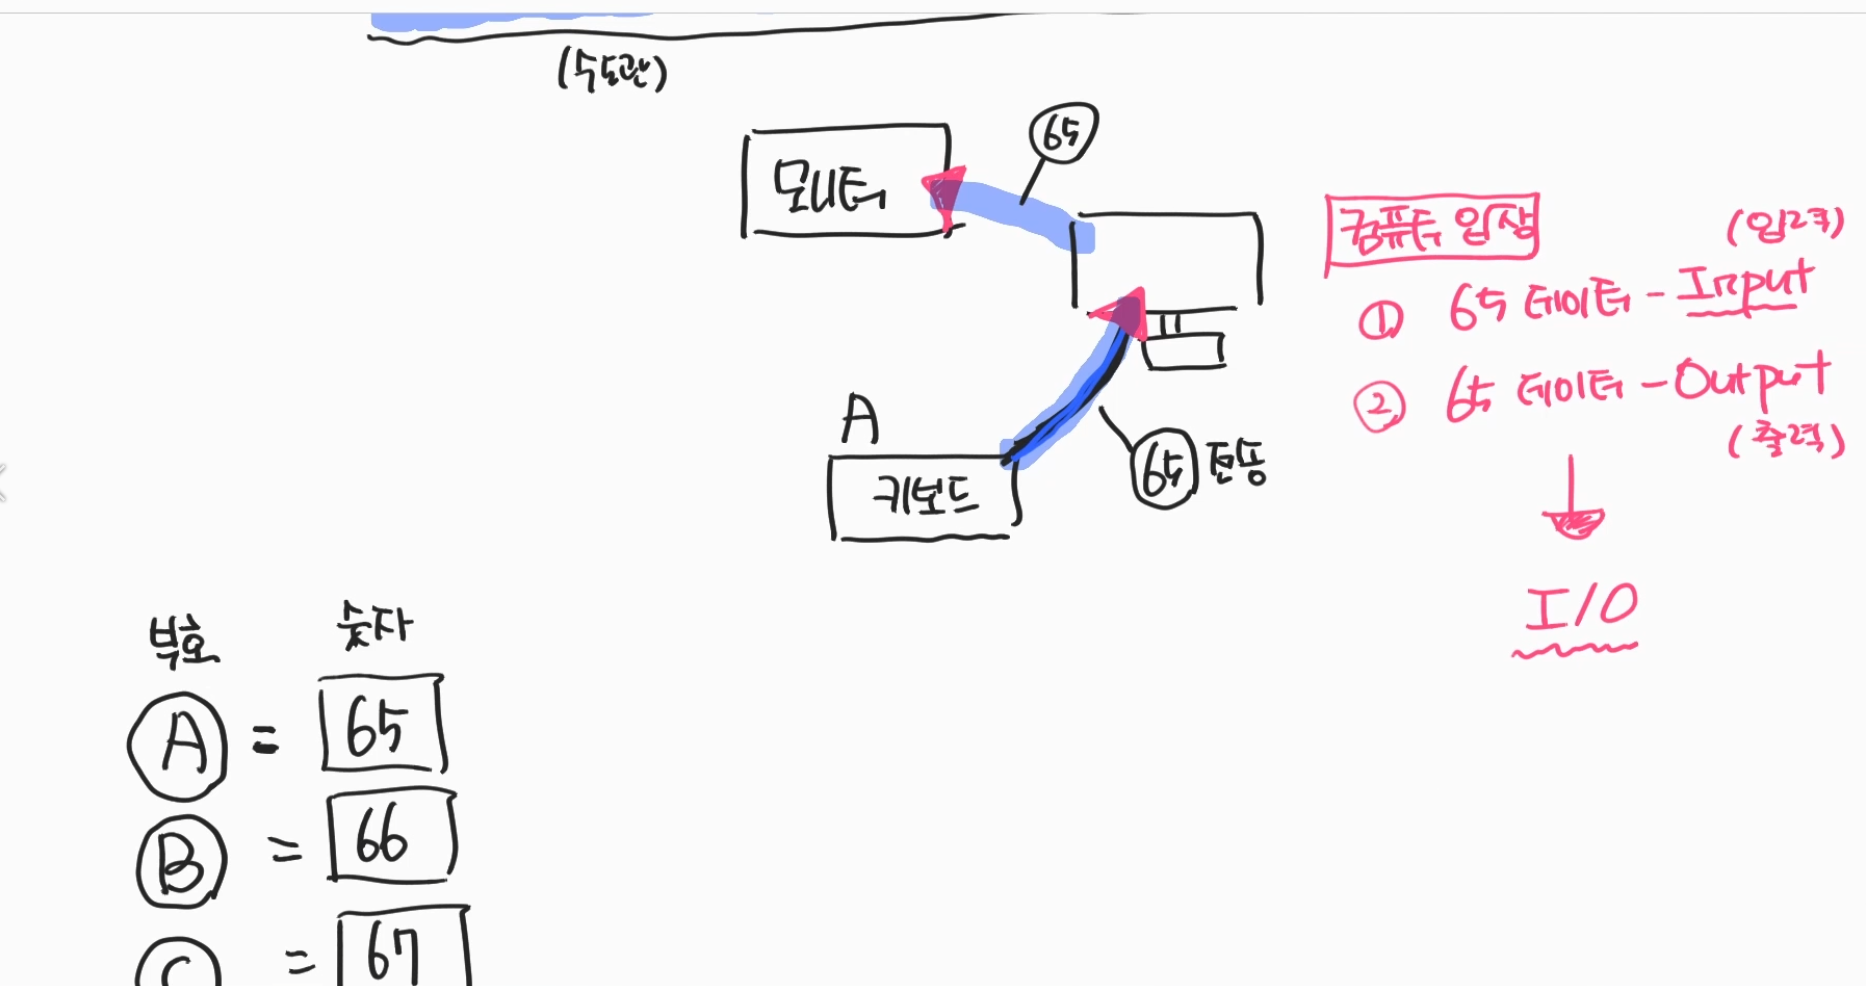 (수도관)
모니터
65
A
키보드
65 전송
컴퓨터 입상
(입력)
① 65 데이터 - Input
② 65 데이터 - Output
(출력)
I/O
부호 숫자
A = 65
B = 66
C = 67